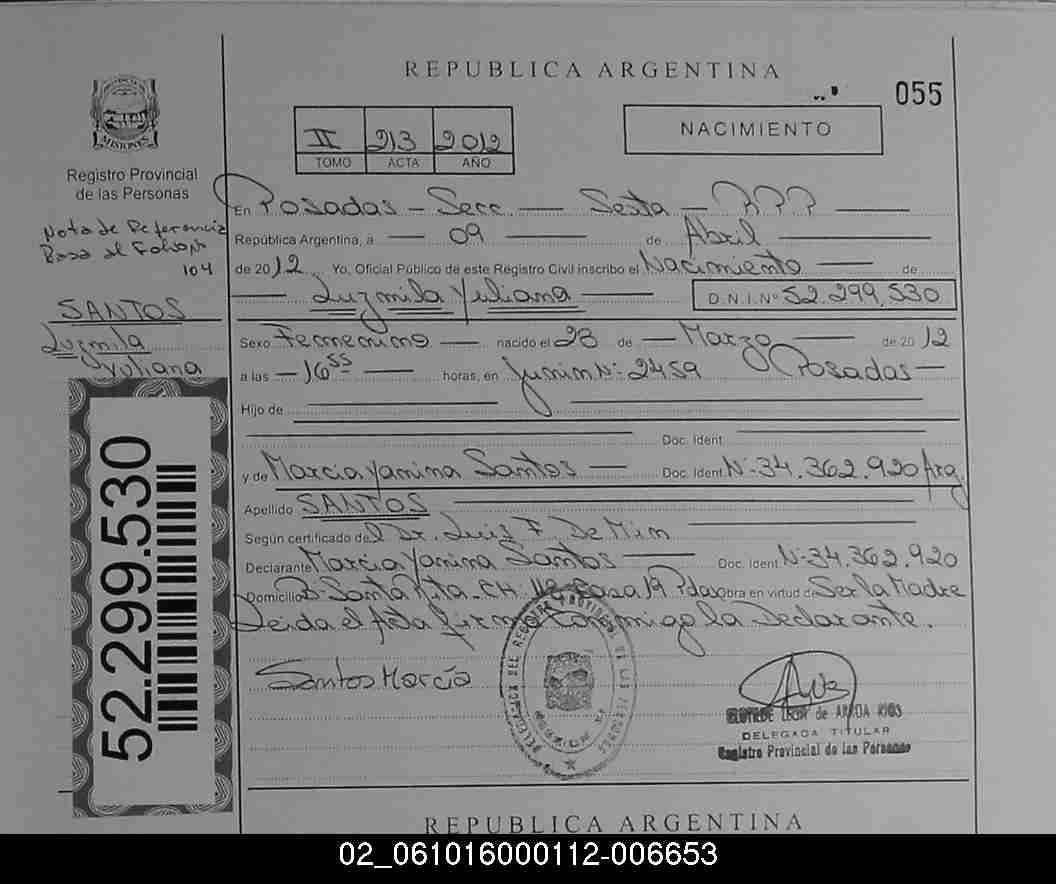 REPUBLICA ARGENTINA
055
II 213 2012
TOMO ACTA AÑO
NACIMIENTO
MISIONES
Registro Provincial
de las Personas
Nota de Referencia
Pasa al Folio Nº
104
SANTOS
Luzmila
Yuliana
52.299.530
En Posadas - Secc. — Sesta — R P P
República Argentina, a — 09 — de Abril
de 2012 Yo, Oficial Público de este Registro Civil inscribo el Nacimiento — de
— Luzmila Yuliana — D.N.I.Nº 52.299.530
Sexo Femenino — nacido el 28 de — Marzo — de 2012
a las — 16 55 — horas, en Junin Nº: 2459 Posadas —
Hijo de
Doc. Ident.
y de Marcia Yanina Santos — Doc. Ident. Nº-34.362.920 Arg.
Apellido SANTOS
Según certificado del Dr. Luis F. De Min
Declarante Marcia Yanina Santos — Doc. Ident. Nº-34.362.920
Domicilio Bº Santa Rita - CH. 112 Casa 19 Pdas obra en virtud de Ser la Madre
Leida el Acta firma Conmigo la Declarante.
Santos Marcia
DELEGADA TITULAR
Registro Provincial de las Personas
REPUBLICA ARGENTINA
02_061016000112-006653